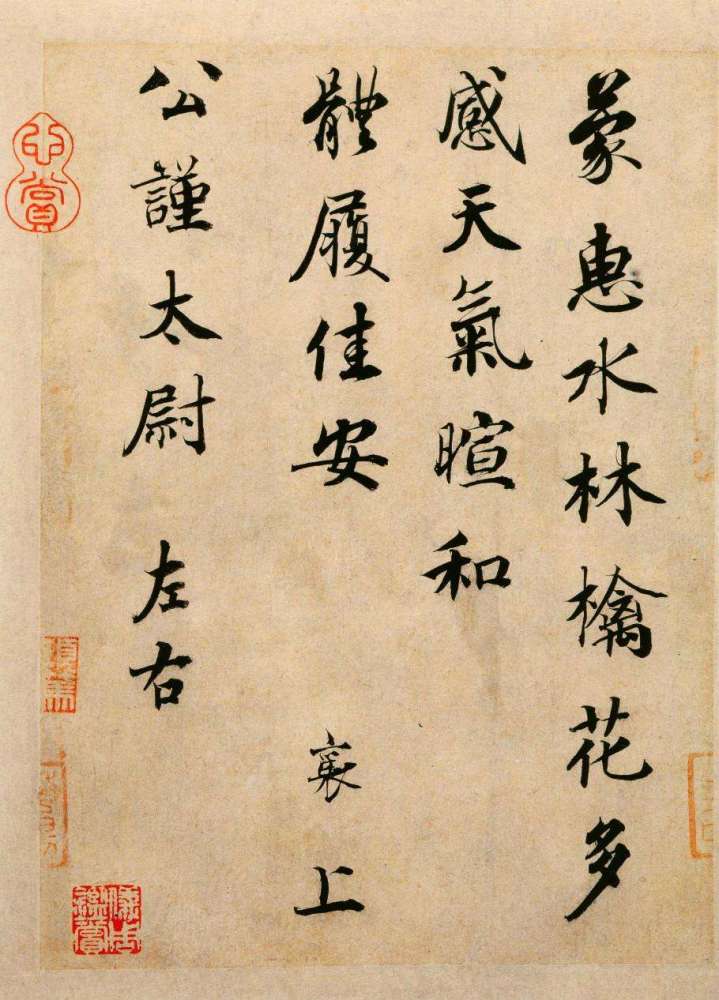 蒙惠水林檎花多
感天氣暄和
體履佳安 襄上
公謹太尉 左右